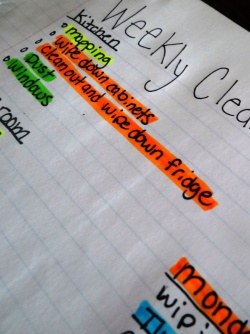 Weekly Clea
Kitchen
mopping
wipe down cabinets
clean out and wipe down fridge
Dust
windows
room
mond
wip